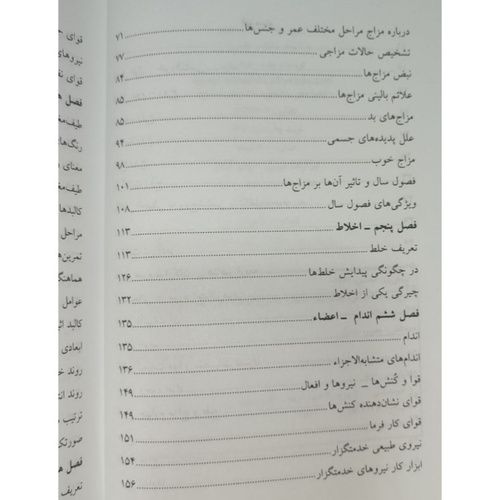 درباره مزاج مراحل مختلف عمر و جنس‌ها ۷۱
تشخیص حالات مزاجی ۷۷
نبض مزاج‌ها ۸۴
علائم بالینی مزاج‌ها ۸۵
مزاج‌های بد ۸۵
علل پدیده‌های جسمی ۹۴
مزاج خوب ۹۸
فصول سال و تاثیر آن‌ها بر مزاج‌ها ۱۰۱
ویژگی‌های فصول سال ۱۰۸
فصل پنجم ـ اخلاط ۱۱۳
تعریف خلط ۱۱۳
در چگونگی پیدایش خلط‌ها ۱۲۶
چیرگی یکی از اخلاط ۱۳۲
فصل ششم اندام ـ اعضاء ۱۳۵
اندام ۱۳۵
اندام‌های متشابه‌الاجزاء ۱۳۶
قوا و کُنش‌ها ـ نیروها و افعال ۱۴۹
قوای نشان‌دهنده کنش‌ها ۱۴۹
قوای کار فرما ۱۵۱
نیروی طبیعی خدمتگزار ۱۵۴
ابزار کار نیروهای خدمتگزار ۱۵۶
قوای
نیروهای
قوای
فصل
رنگ‌های
معنای
کالبدها
مراحل
تمرین‌ها
هماهنگ
عوامل
کالبد
ابعادی
روند
روند
ترتیب
فصل
تعریف